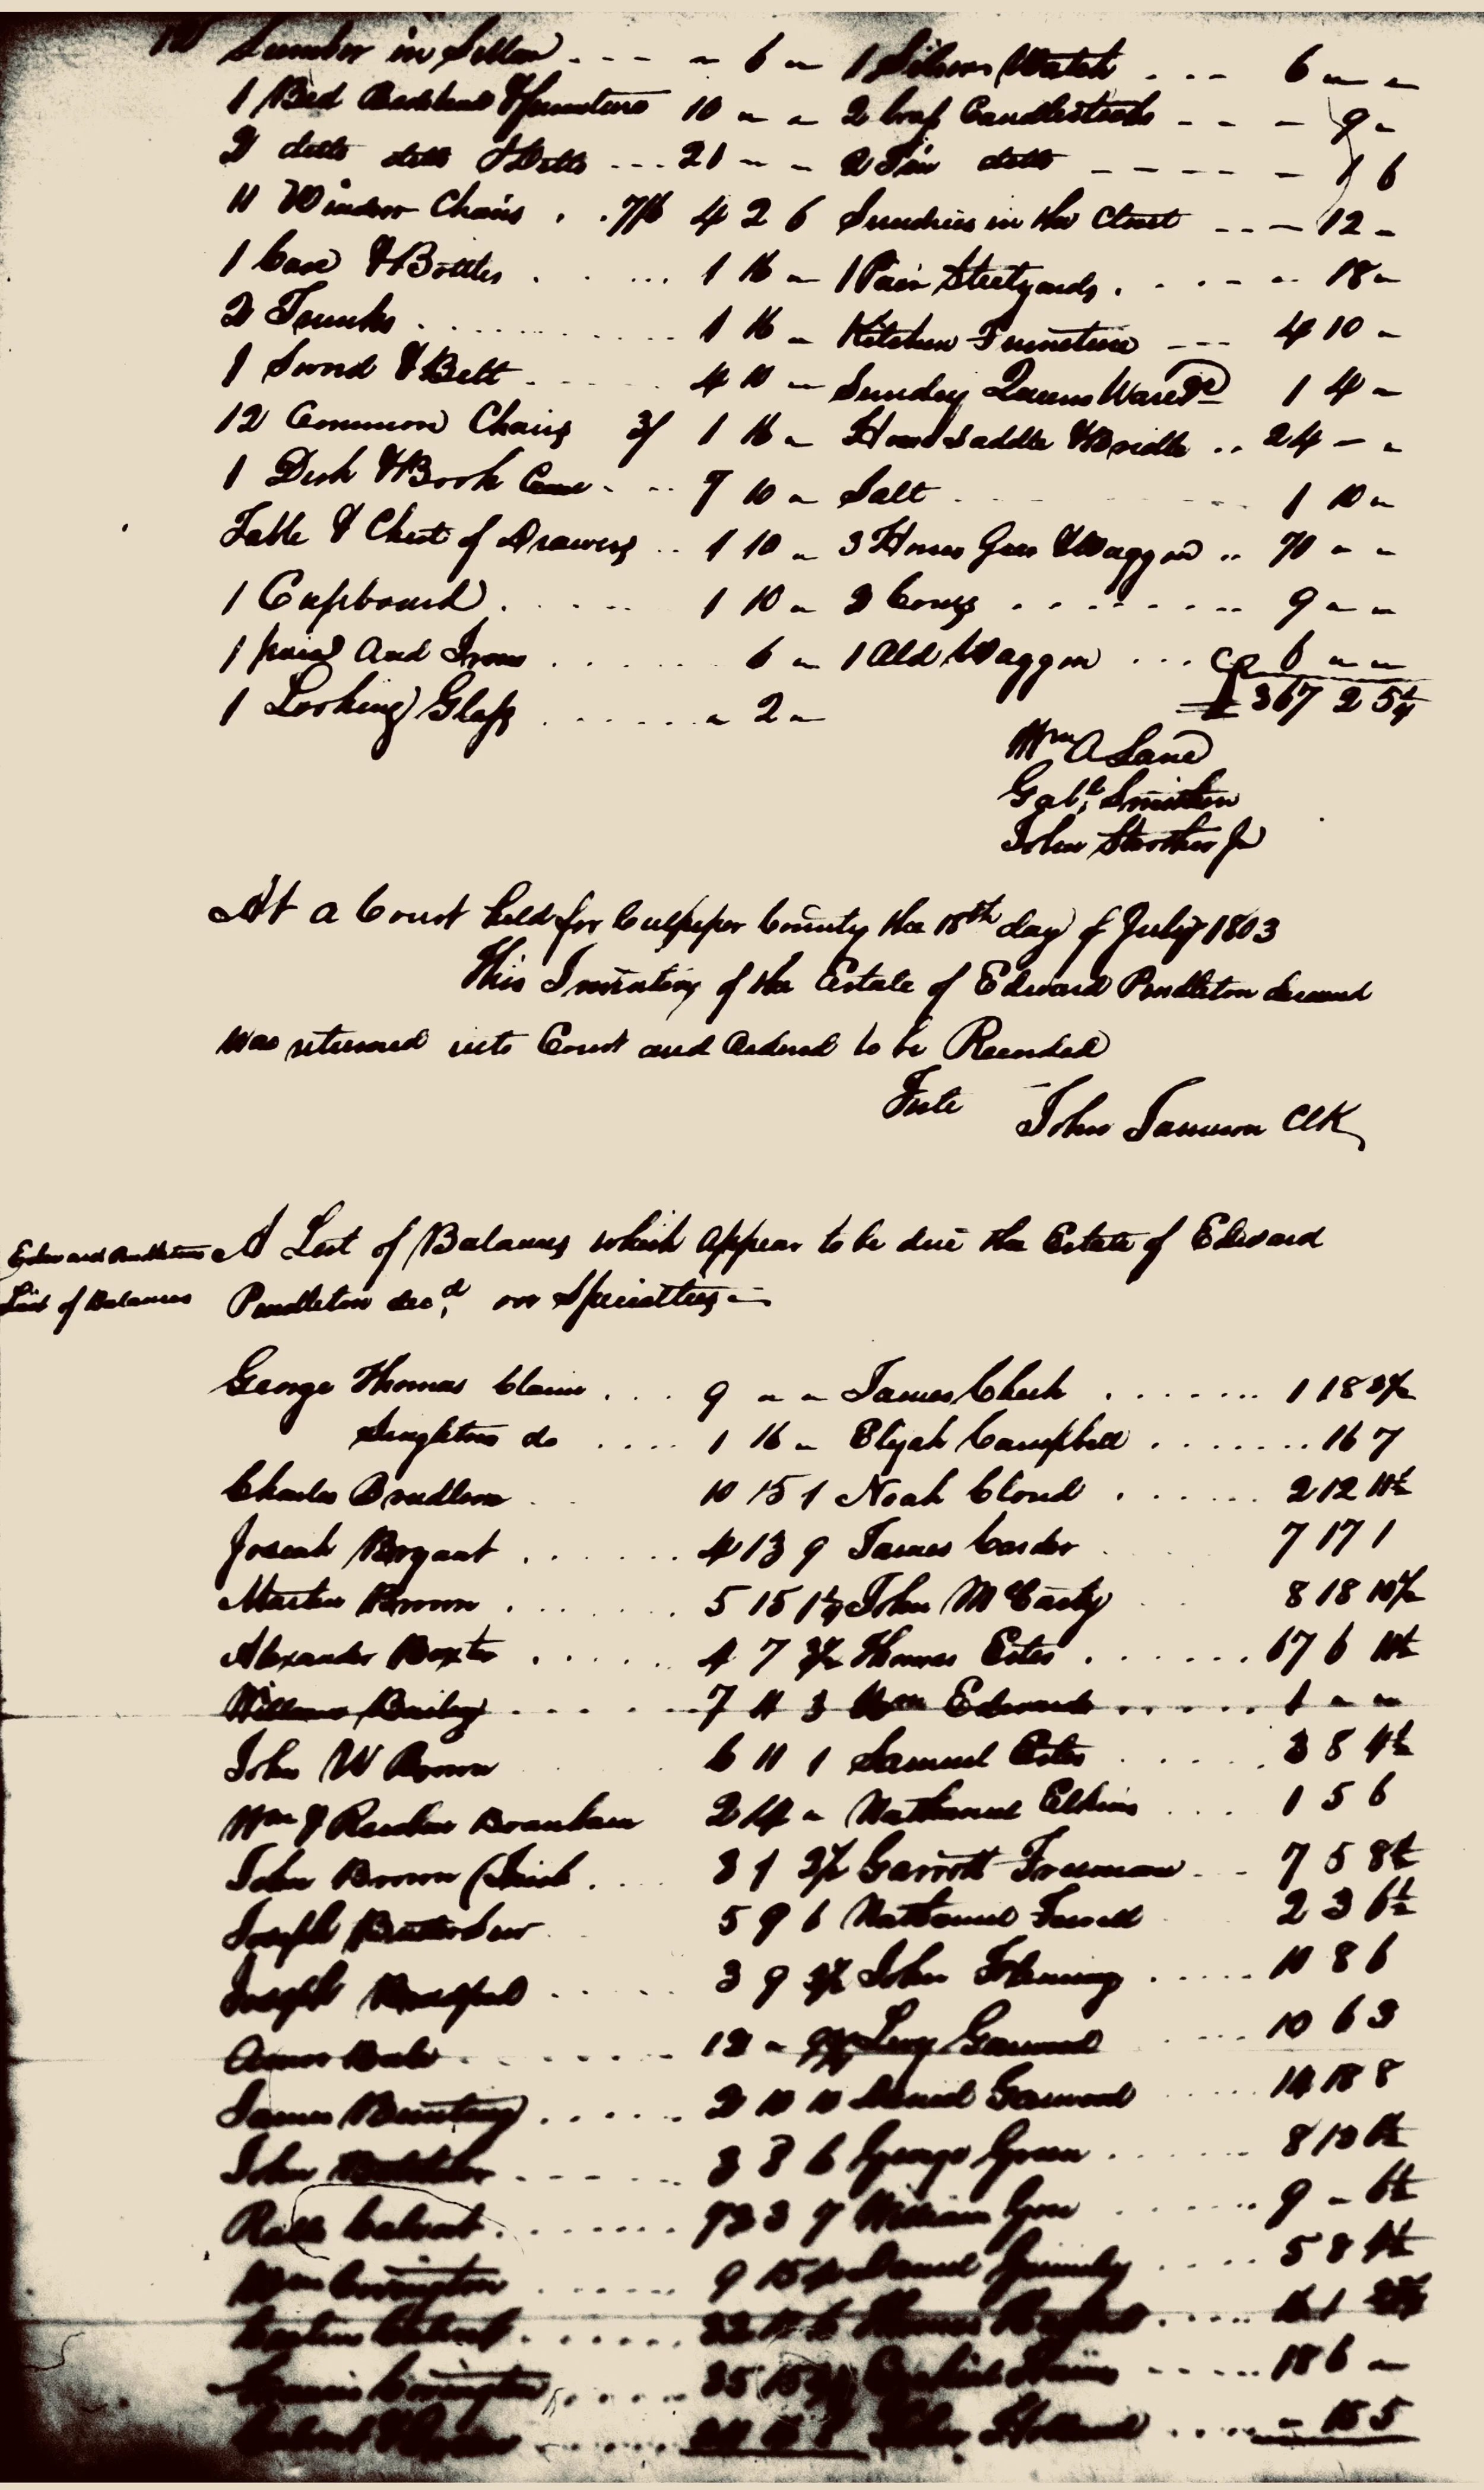 Lumber in Sellar . . . - - 6 - 1 Silver Watch . . . 6 - -
1 Bed Bedstead & Furniture 10 - - 2 brass Candlesticks - - - 9 -
2 ditto ditto & Ditto . . . 21 - - 2 Tin ditto - - - - - 1 6
11 Windsor Chairs . . 7/6 4 2 6 Sundries in the Closet - - - 12 -
1 Case & Bottles . . . . . 1 16 - 1 Pair Steelyards . . . . . 18 -
2 Trunks . . . . . . . . . 1 16 - Kitchen Furniture - - - 4 10 -
1 Sword & Belt . . . . . 4 10 - Sunday Queens Ware &c 1 4 -
12 Common Chairs 3/ 1 16 - Horse Saddle & Bridle . . 24 - -
1 Desk & Book Case . . . 7 10 - Salt . . . . . . 1 10 -
Table & Chest of Drawers . . 1 10 - 3 Horses Gear & Waggon . . 70 - -
1 Cupboard . . . . . 1 10 - 2 Cows . . . . . . . . 9 - -
1 pair And Irons . . . . . 6 - 1 Old Waggon . . . 6 - -
1 Looking Glass . . . . . . - 2 - £ 367 2 5¼
Wm A Lane
Gabl. Smither
John Strother Jr
At a Court held for Culpeper County the 18th day of July 1803
This Inventory of the Estate of Edward Pendleton deceased
was returned into Court and Ordered to be Recorded
Teste John Jameson Clk
A List of Balances which appear to be due the Estate of Edward
Edward Pendletons
List of Balances
Pendleton decd. on Specialties -
George Thomas Claim . . . 9 - - James Cheek . . . . . . . 1 18
Singleton do . . . . 1 16 - Elijah Campbell . . . . . . . 16 7
Charles 10 15 1 Noah Cloud . . . . . . 2 12 11½
Josiah Bryant . . . . . . 4 13 9 James Carder 7 17 1
Martin Brown . . . . . . 5 15 John McCarty 8 18 10½
Alexander Baxter . . . . . 4 7 Thomas Estes . . . . . . . 17 6
William Bailey . . . . . . 7 11 3 Wm Edwards . . . . . 1 - -
John W Brown 6 11 1 Samuel Estes . . . . . 3 8 4½
Wm & Reuben Branham 2 14 - Nathaniel Elkins . . . . 1 5 6
John Brown . . . . 3 1 Garrott Freeman . . 7 5 8½
Joseph 5 9 6 Nathaniel 2 3 6½
Joseph Bradford . . . . . 3 9 John Fleming . . . . . 10 8 6
13 - Garwood . . . . 10 6 3
James Bunting . . . . . 2 10 10 Daniel Garwood . . . . . 14 18 8
John . . . . . . 3 8 6 George Green . . . . . . 8 13
Calvert . . . . . . . 7 William . . . . . . 9 - 6½
Wm Covington . . . . . . 9 15 Daniel . . . . 5 8 4½
Calvert . . . . . . Thomas
Covington . . . . . 35 . . . . . 18 6 -
Holland . . . . - 15 5